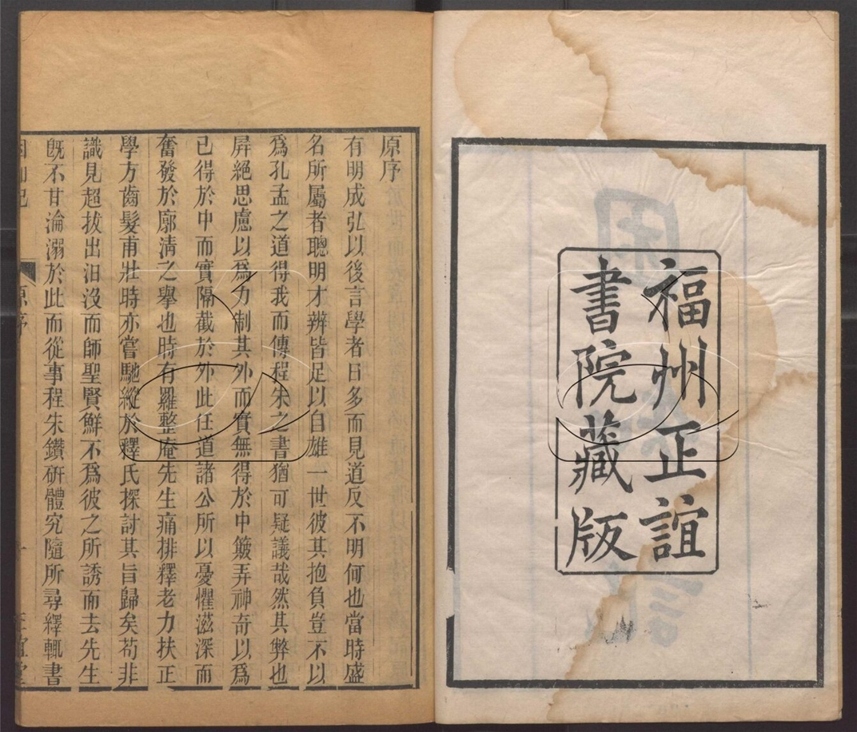 福州正誼
書院藏版
原序
有明成弘以後言學者日多而見道反不明何也當時盛
名所屬者聰明才辨皆足以自雄一世彼其抱負豈不以
爲孔孟之道得我而傳程朱之書猶可疑議哉然其弊也
屏絕思慮以爲力制其外而實無得於中簸弄神奇以爲
已得於中而實隔截於外此任道諸公所以憂懼滋深而
奮發於廓清之舉也時有羅整庵先生痛排釋老力扶正
學方齒髮甫壯時亦嘗馳縱於釋氏探討其旨歸矣苟非
識見超拔出汨沒而師聖賢鮮不爲彼之所誘而去先生
旣不甘淪溺於此而從事程朱鑽硏體究隨所尋釋輒書
原序